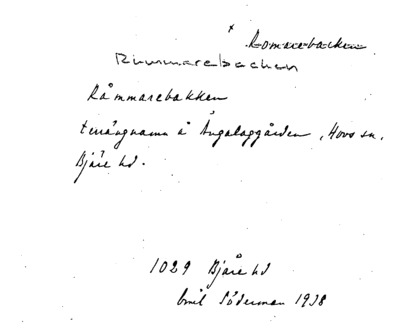 x Romarebacken
Rummarebacken
Råmmarebakken
terrängnamn å Ängalaggården, Hovs sn,
Bjäre hd.
1029 Bjäre hd
Emil Söderman 1938